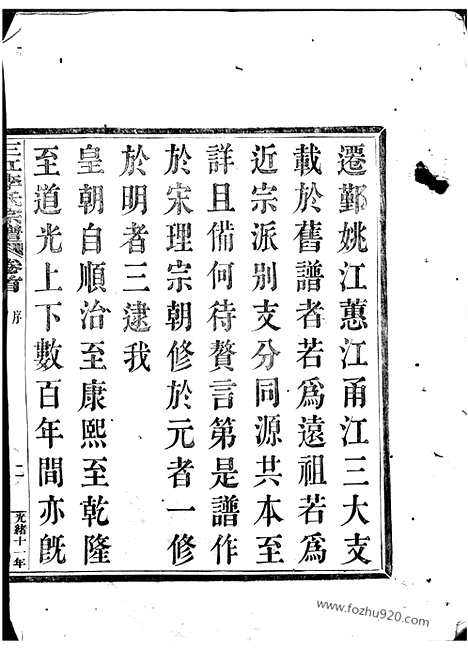 遷鄞姚江蕙江甬江三大支
載於舊譜者若爲遠祖若爲
近宗派別支分同源共本至
詳且備何待贅言第是譜作
於宋理宗朝修於元者一修
於明者三逮我
皇朝自順治至康熙至乾隆
至道光上下數百年間亦旣
三江李氏宗譜 卷首 序 二 光緒十一年
www.fozhu920.com